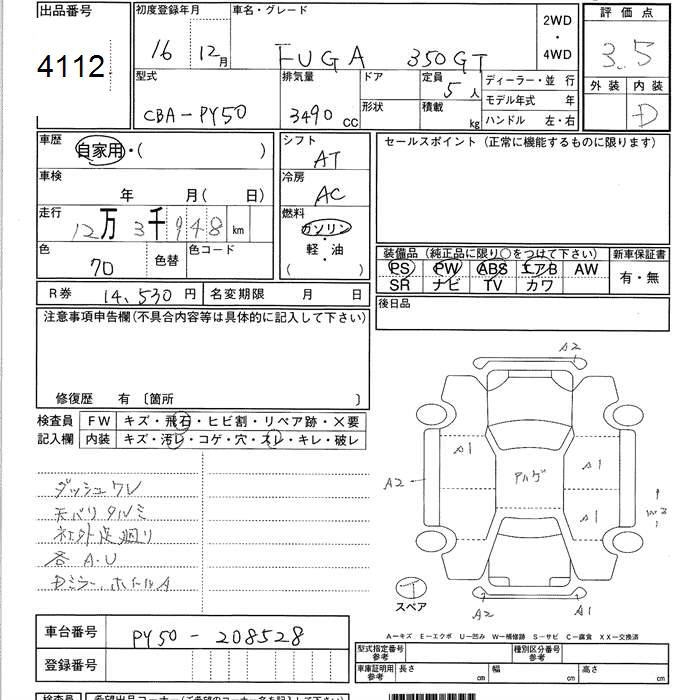 出品番号
4112
初度登録年月
16 12月
車名・グレード
FUGA 350GT
2WD
・
4WD
評価点
3.5
外装 内装
D
型式
CBA-PY50
排気量
3490 CC
ドア
形状
定員
5人
積載
kg
ディーラー・並行
モデル年式 年
ハンドル 左・右
車歴
自家用・( )
車検
年 月( 日)
走行
12万3千948 km
色
70
色替
色コード
シフト
AT
冷房
AC
燃料
ガソリン
・
軽・油
( )
セールスポイント (正常に機能するものに限ります)
装備品 (純正品に限り○をつけて下さい)
PS PW ABS エアB AW
SR ナビ TV カワ
新車保証書
有・無
後日品
R券 14,530円 名変期限 月 日
注意事項申告欄(不具合内容等は具体的に記入して下さい)
修復歴 有 〔箇所 〕
検査員
記入欄
FW キズ・飛石・ヒビ割・リペア跡・×要
内装 キズ・汚レ・コゲ・穴・スレ・キレ・破レ
ダッシュワレ
天バリタルミ
社外足廻り
各A.U
Dミラー、ホイールA
A2
A1
A1
A2
A1
W2
A2
A1
スペア
A－キズ E－エクボ U－凹み W－補修跡 S－サビ C－腐食 XX－交換済
車台番号 PY50-208528
登録番号
型式指定番号
参考
種別区分番号
参考
車庫証明用
参考
長さ cm 幅 cm 高さ cm
検査員 希望出品コーナー(ご希望のコーナー名を記入下さい)